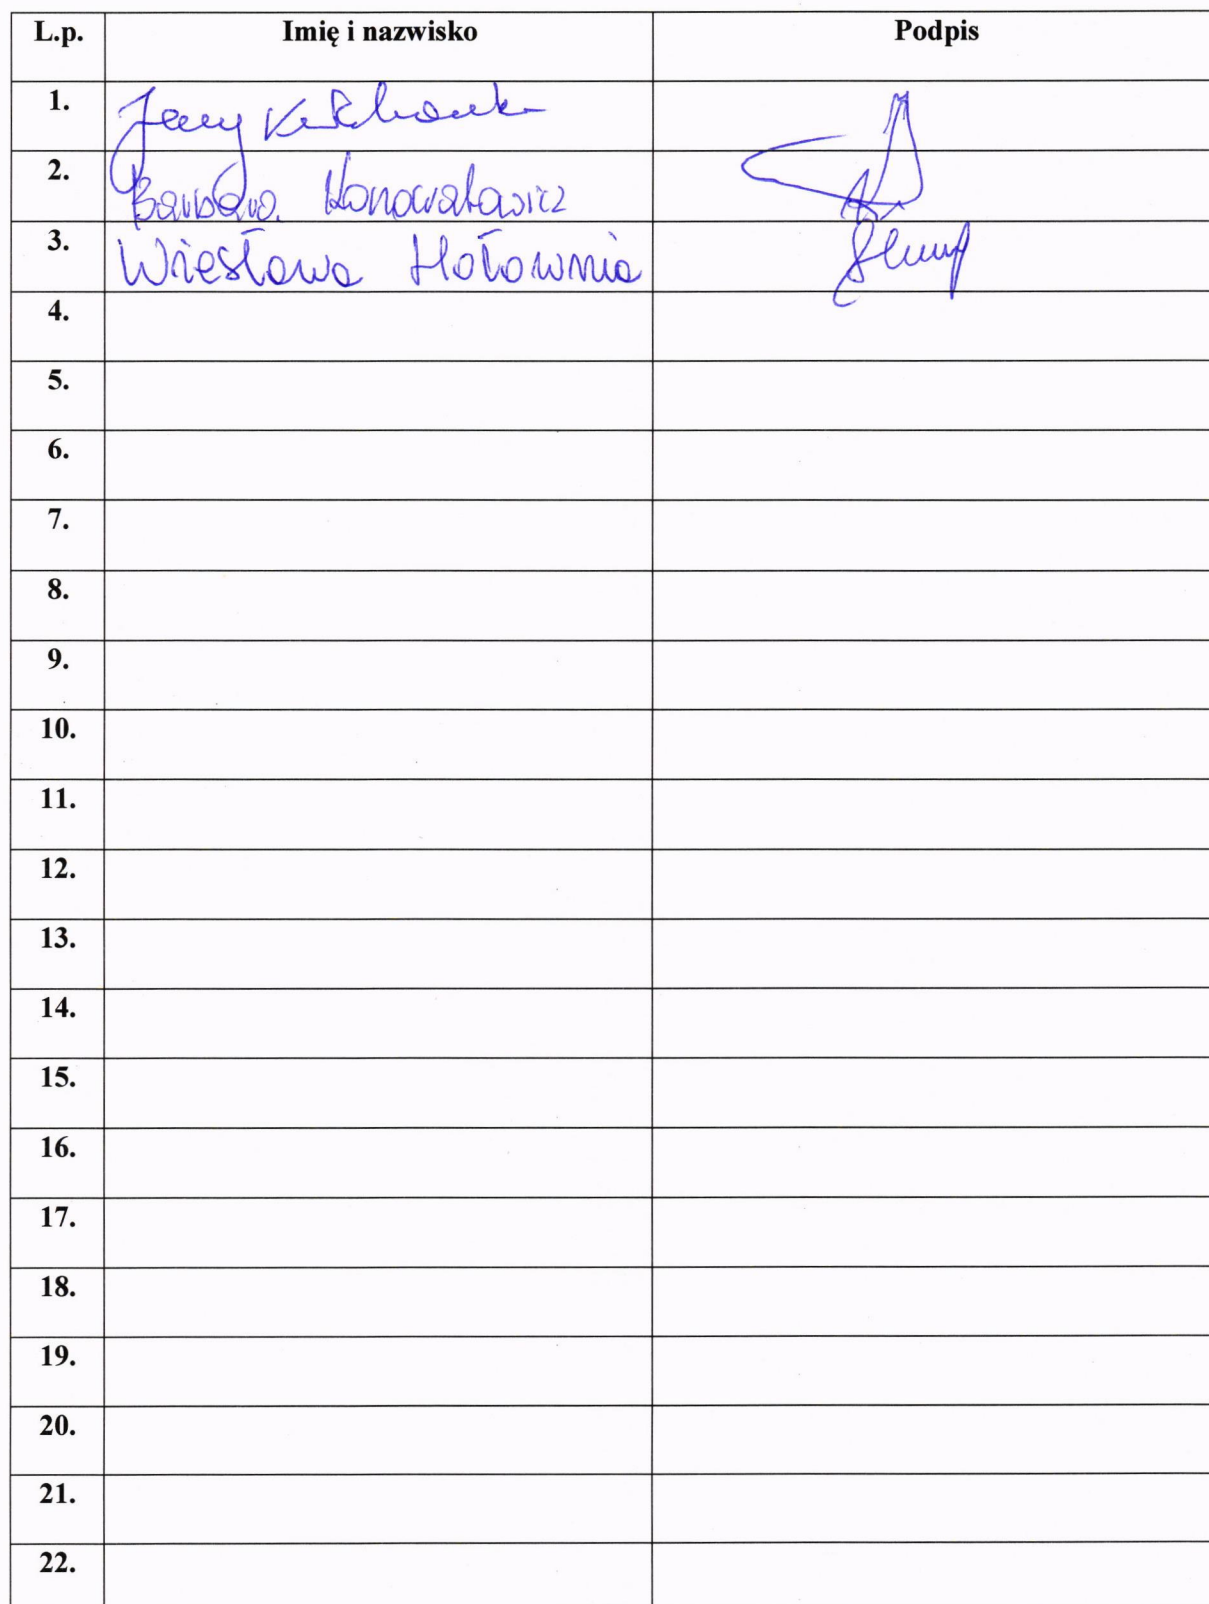 L.p. Imię i nazwisko Podpis
1. Jerzy
2. Barbara Konowałowicz
3. Wiesława Hołownia
4.
5.
6.
7.
8.
9.
10.
11.
12.
13.
14.
15.
16.
17.
18.
19.
20.
21.
22.